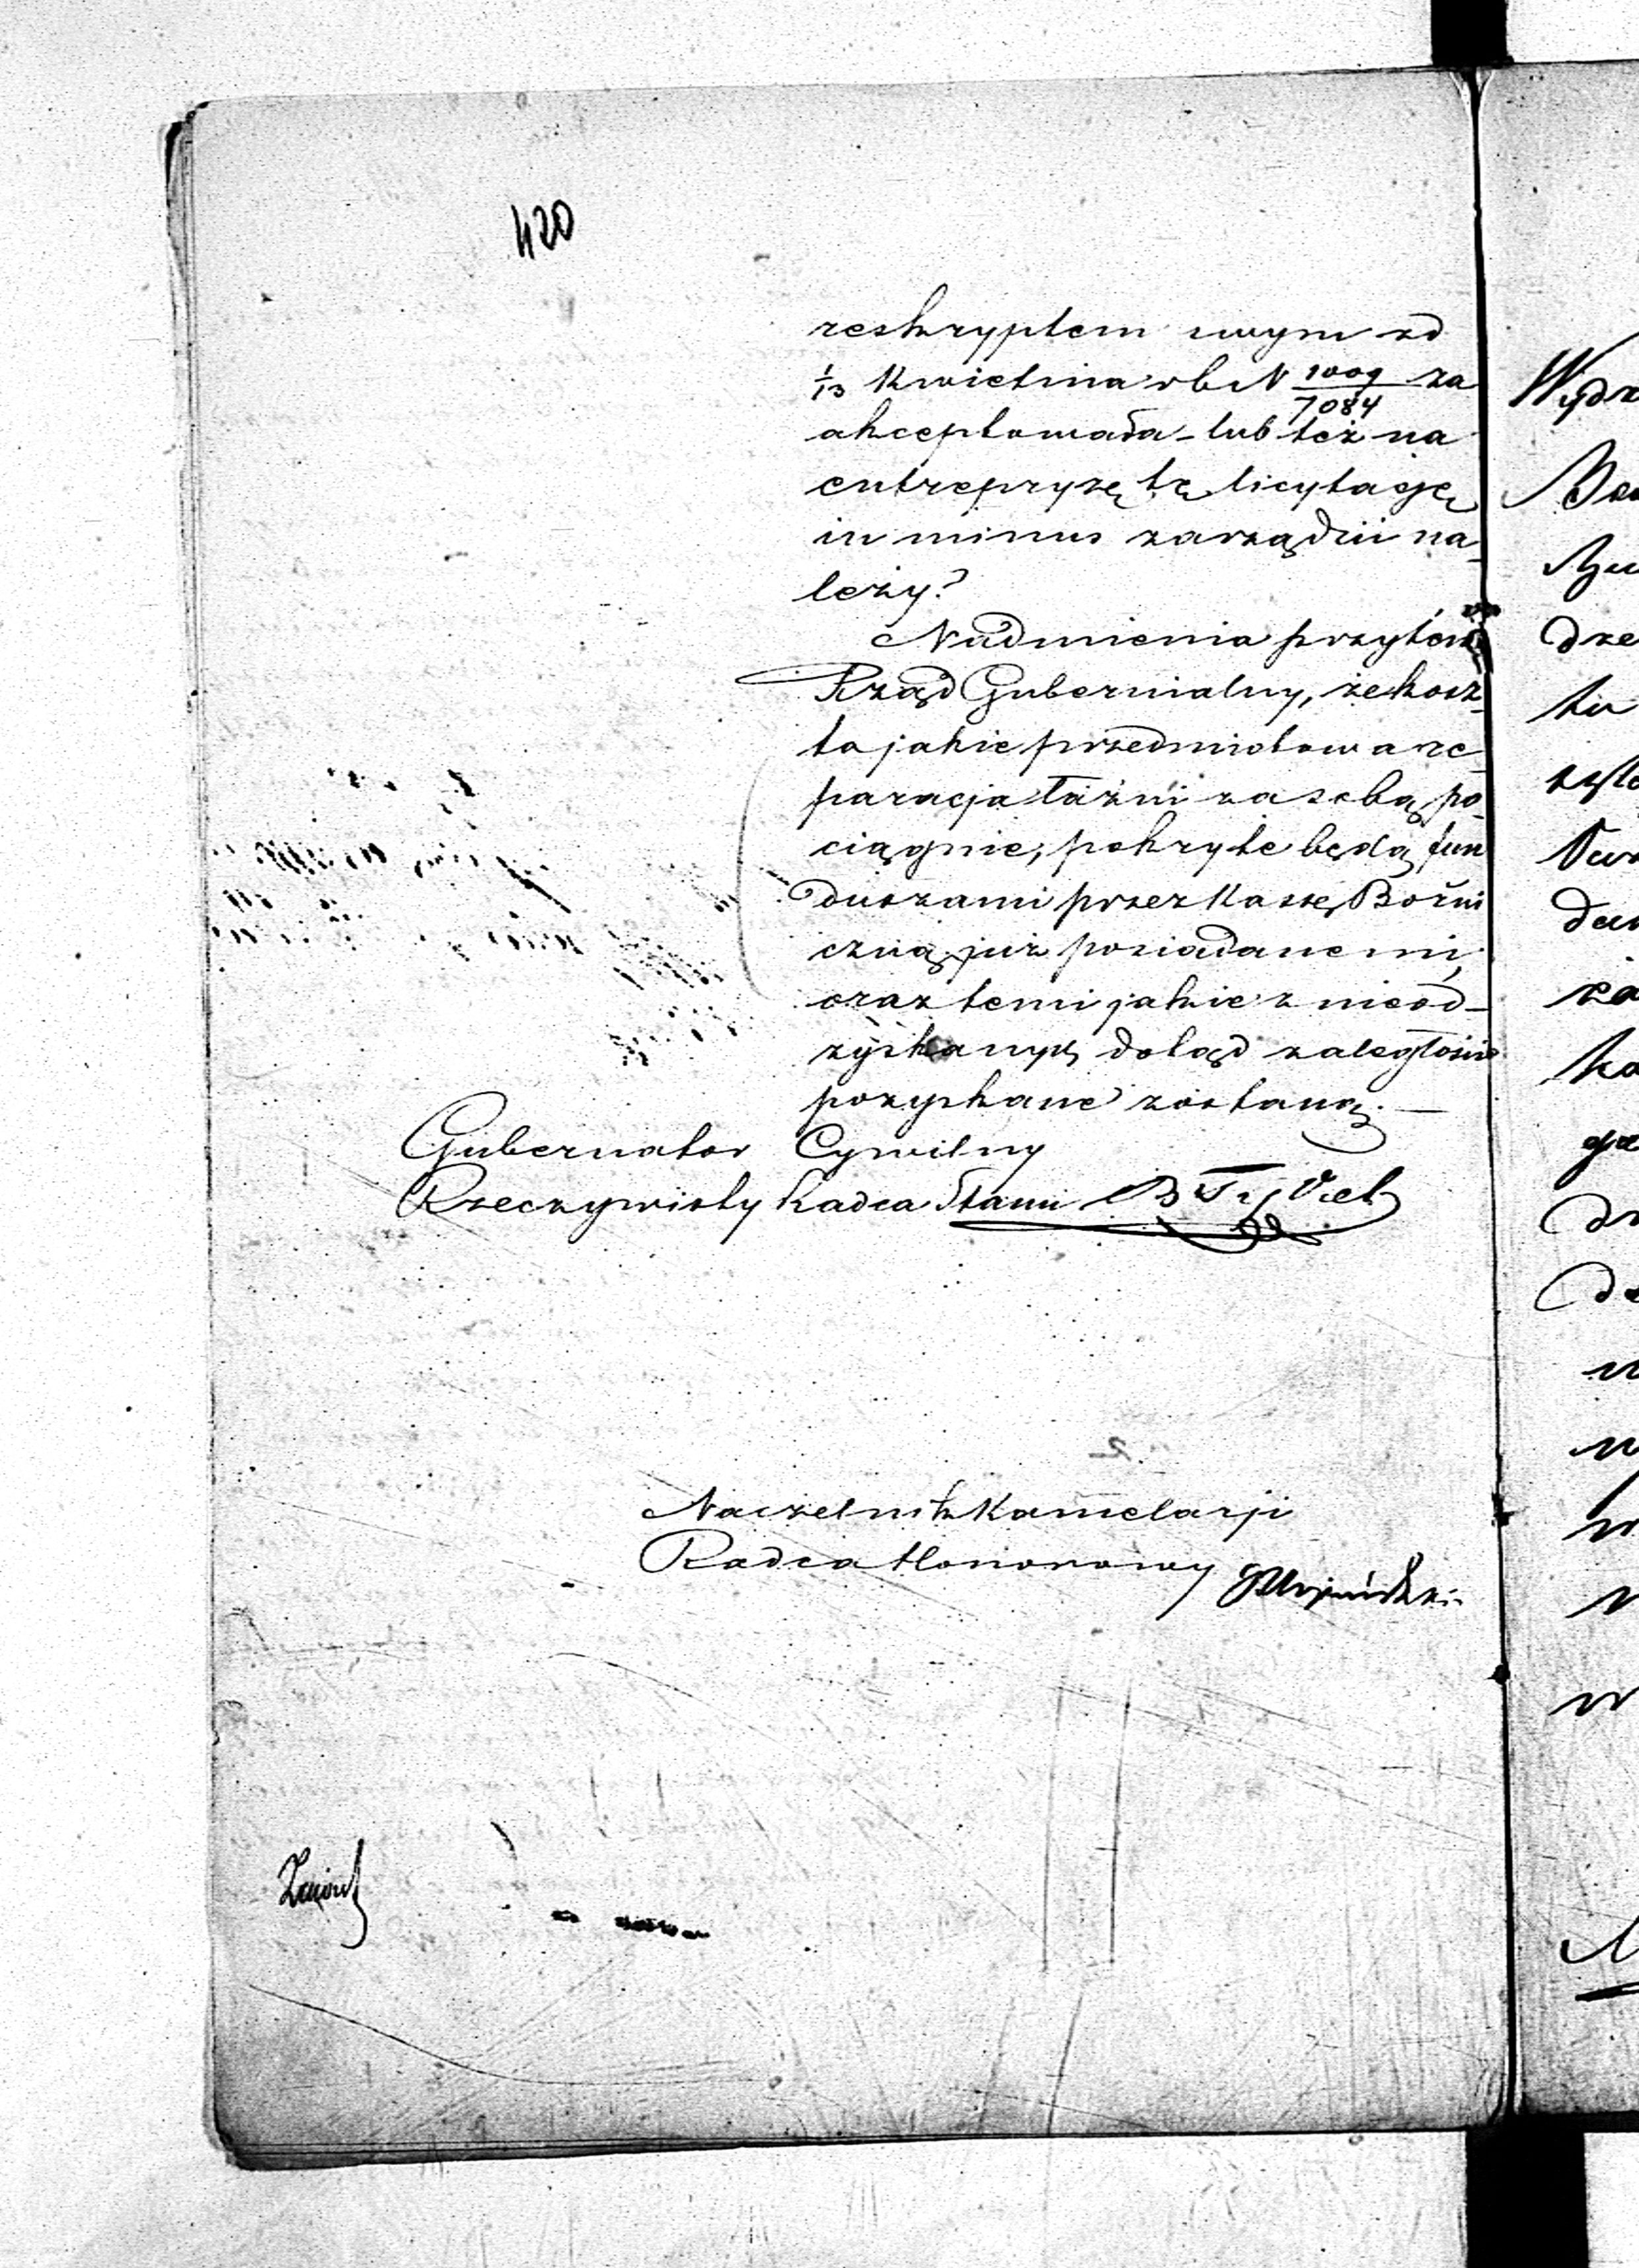 420
reskryptem swym zd
1/13 Kwietnia rb N 1009/7084 za
akceptowała - lub też na
entrepryzę tę licytację
in minus zarządzić na
leży?
Nadmienia przytém
Rząd Gubernialny, że kosz
ta jakie przedmiotowa re
paracja łaźni za sobą po
ciągnie, pokryte będą fun
duszami przez Kassę Bożni
czną już posiadanemi,
oraz temi jakie z nieod-
zyskanych dotąd zaległości
pozyskane zostaną.
Gubernator Cywilny
Rzeczywisty Radca Stanu
Naczelnik Kancelarji
Radca Honorowy
Wydz
dze